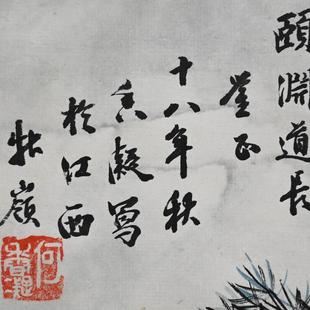 頤淵道長
正
十八年秋
香凝寫
於江西
牯嶺
何香凝